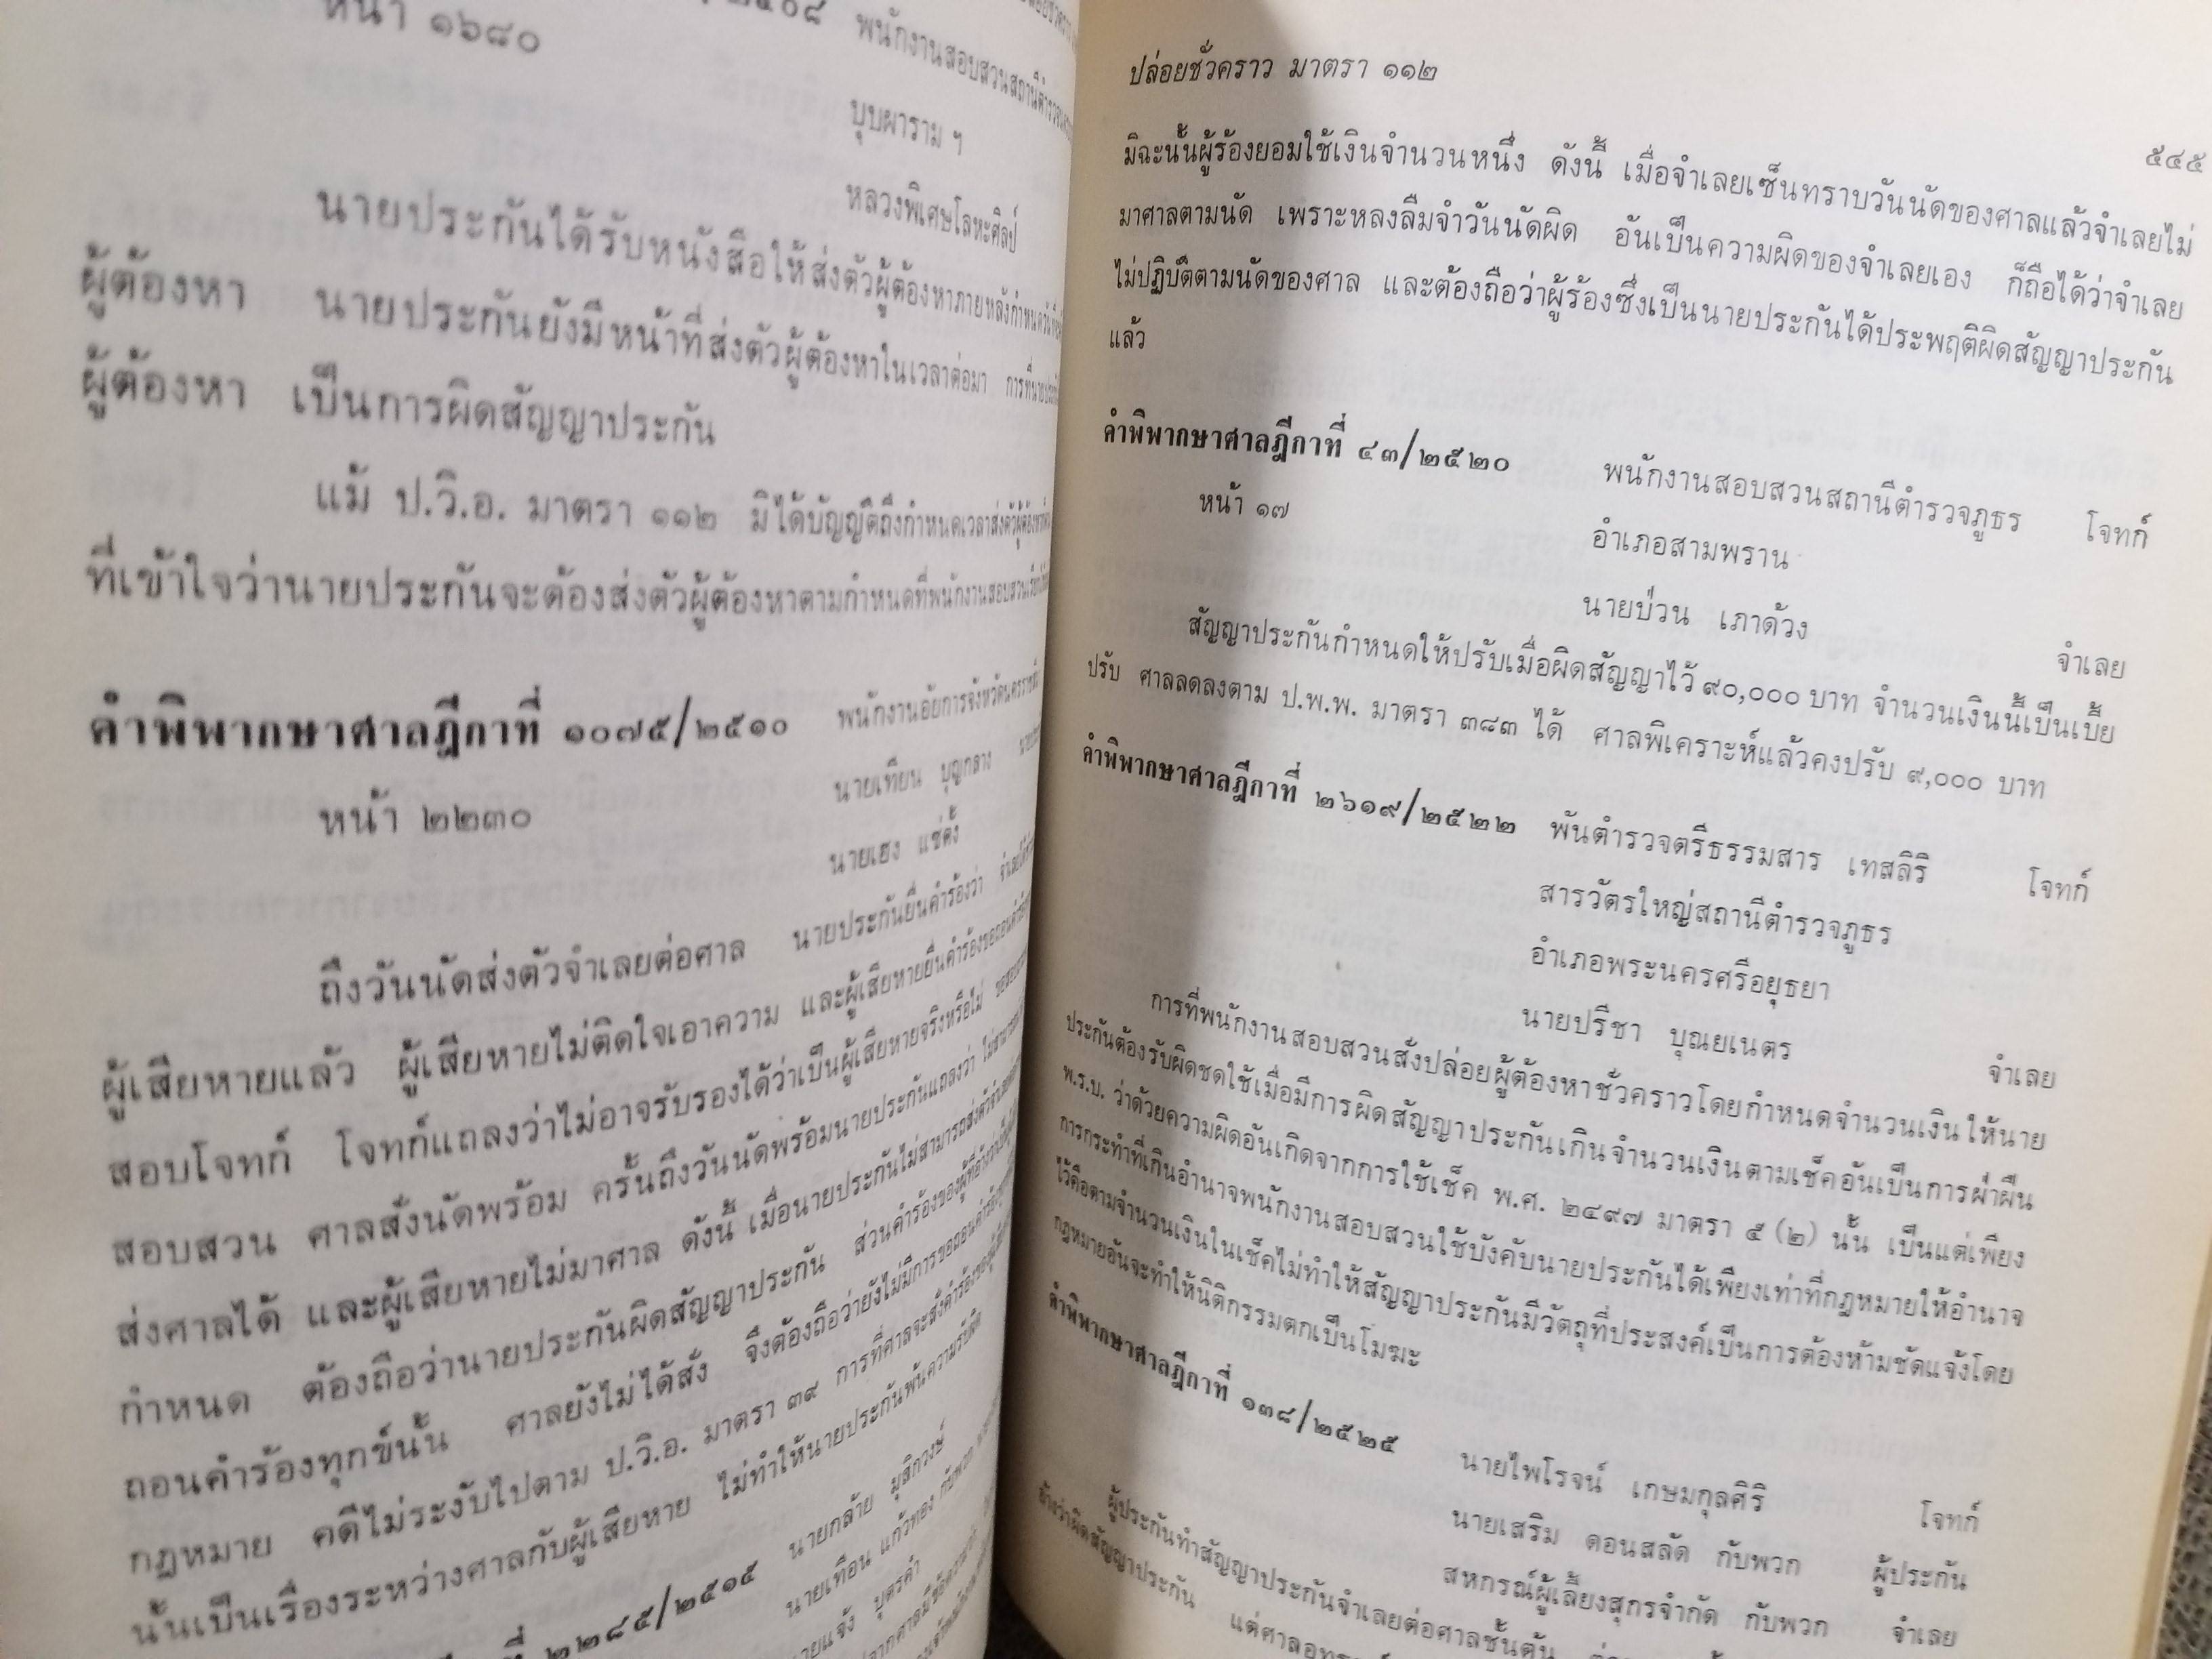 หน้า ๑๖๘๐
พนักงานสอบสวนสถานีตำรวจนครบาล
บุบผาราม ฯ
หลวงพิเศษโลหะศิลป์
นายประกันได้รับหนังสือให้ส่งตัวผู้ต้องหาภายหลังกำหนดวัน
ผู้ต้องหา นายประกันยังมีหน้าที่ส่งตัวผู้ต้องหาในเวลาต่อมา การที่นาย
ผู้ต้องหา เป็นการผิดสัญญาประกัน
แม้ ป.วิ.อ. มาตรา ๑๑๒ มิได้บัญญัติถึงกำหนดเวลาส่งตัวผู้ต้องหา
ที่เข้าใจว่านายประกันจะต้องส่งตัวผู้ต้องหาตามกำหนดที่พนักงานสอบสวน
คำพิพากษาศาลฎีกาที่ ๑๐๗๕/๒๕๑๐ พนักงานอัยการจังหวัดนครราชสีมา
หน้า ๒๒๓๐ นายเทียน บุญกลาง
นายเฮง แซ่ตั้ง
ถึงวันนัดส่งตัวจำเลยต่อศาล นายประกันยื่นคำร้องว่า
ผู้เสียหายแล้ว ผู้เสียหายไม่ติดใจเอาความ และผู้เสียหายยื่นคำร้องขอถอนคำร้อง
สอบโจทก์ โจทก์แถลงว่าไม่อาจรับรองได้ว่าเป็นผู้เสียหายจริงหรือไม่
สอบสวน ศาลสั่งนัดพร้อม ครั้นถึงวันนัดพร้อมนายประกันแถลงว่า
ส่งศาลได้ และผู้เสียหายไม่มาศาล ดังนี้ เมื่อนายประกันไม่สามารถส่งตัวจำเลย
กำหนด ต้องถือว่านายประกันผิดสัญญาประกัน ส่วนคำร้องของผู้ที่อ้างว่าเป็น
ถอนคำร้องทุกข์นั้น ศาลยังไม่ได้สั่ง จึงต้องถือว่ายังไม่มีการขอถอนคำร้องทุกข์
กฎหมาย คดีไม่ระงับไปตาม ป.วิ.อ. มาตรา ๓๙ การที่ศาลจะสั่งคำร้องของผู้
นั้นเป็นเรื่องระหว่างศาลกับผู้เสียหาย ไม่ทำให้นายประกันพ้นความรับผิด
๒๒๘๕/๒๕๑๕ นายกล้าย มุสิกวงษ์
นายเทือน แก้วทอง กับพวก
นายแจ้ง บุตรคำ
ปล่อยชั่วคราว มาตรา ๑๑๒
๕๔๕
มิฉะนั้นผู้ร้องยอมใช้เงินจำนวนหนึ่ง ดังนี้ เมื่อจำเลยเซ็นทราบวันนัดของศาลแล้วจำเลยไม่
มาศาลตามนัด เพราะหลงลืมจำวันนัดผิด อันเป็นความผิดของจำเลยเอง ก็ถือได้ว่าจำเลย
ไม่ปฏิบัติตามนัดของศาล และต้องถือว่าผู้ร้องซึ่งเป็นนายประกันได้ประพฤติผิดสัญญาประกัน
แล้ว
คำพิพากษาศาลฎีกาที่ ๔๓/๒๕๒๐ พนักงานสอบสวนสถานีตำรวจภูธร โจทก์
หน้า ๑๗ อำเภอสามพราน
นายบ่วน เภาด้วง จำเลย
สัญญาประกันกำหนดให้ปรับเมื่อผิดสัญญาไว้ ๙๐,๐๐๐ บาท จำนวนเงินนี้เป็นเบี้ย
ปรับ ศาลลดลงตาม ป.พ.พ. มาตรา ๓๘๓ ได้ ศาลพิเคราะห์แล้วคงปรับ ๙,๐๐๐ บาท
คำพิพากษาศาลฎีกาที่ ๒๖๑๙/๒๕๒๒ พันตำรวจตรีธรรมสาร เทสลิริ โจทก์
สารวัตรใหญ่สถานีตำรวจภูธร
อำเภอพระนครศรีอยุธยา
นายปรีชา บุณยเนตร จำเลย
การที่พนักงานสอบสวนสั่งปล่อยผู้ต้องหาชั่วคราวโดยกำหนดจำนวนเงินให้นาย
ประกันต้องรับผิดชดใช้เมื่อมีการผิดสัญญาประกันเกินจำนวนเงินตามเช็คอันเป็นการฝ่าฝืน
พ.ร.บ. ว่าด้วยความผิดอันเกิดจากการใช้เช็ค พ.ศ. ๒๔๙๗ มาตรา ๕ (๒) นั้น เป็นแต่เพียง
การกระทำที่เกินอำนาจพนักงานสอบสวนใช้บังคับนายประกันได้เพียงเท่าที่กฎหมายให้อำนาจ
ไว้คือตามจำนวนเงินในเช็คไม่ทำให้สัญญาประกันมีวัตถุที่ประสงค์เป็นการต้องห้ามชัดแจ้งโดย
กฎหมายอันจะทำให้นิติกรรมตกเป็นโมฆะ
คำพิพากษาศาลฎีกาที่ ๑๓๘/๒๕๒๕ นายไพโรจน์ เกษมกุลศิริ โจทก์
นายเสริม ดอนสลัด กับพวก ผู้ประกัน
สหกรณ์ผู้เลี้ยงสุกรจำกัด กับพวก จำเลย
ผู้ประกันทำสัญญาประกันจำเลยต่อศาลชั้นต้น
อ้างว่าผิดสัญญาประกัน